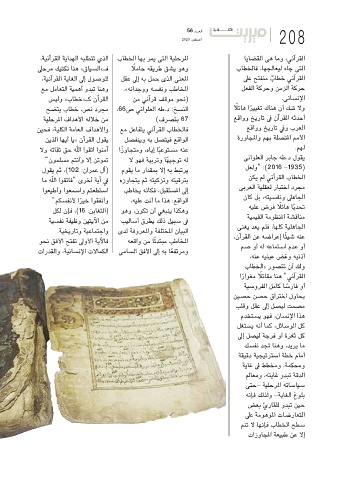 العدد 56
أغسطس 2023
208
القرآني، وما هي القضايا
التي جاء ليعالجها، فالخطاب
القرآني خطابٌ منفتح على
حركة الزمن وحركة الفعل
الإنساني.
ولا شك أن هناك تغييرًا هائلًا
أحدثه القرآن في تاريخ وواقع
العرب وفي تاريخ وواقع
الأمم المتصلة بهم والمجاورة
لهم.
يقول د.طه جابر العلواني
(1935- 2016): "ولعل
الخطاب القرآني لم يكن
مجرد اختبار لعقلية العربي
ونفسيته، بل كان
تحديًا هائلًا فرض عليه
مناقشة المنظومة القيمية
الجاهلية كلها، فلم يعد يغني
عنه شيئًا إعراضه عن القرآن،
أو عدم استماعه له أو صم
أذنيه وغض عينيه عنه.
ولك أن تتصور «الخطاب
القرآني" هنا مقاتلًا مغوارًا
أو فارسًا كامل الفروسية
يحاول اختراق حصن حصين
مصمت ليصل إلى عقل وقلب
هذا الإنسان، فهو يستخدم
كل الوسائل، كما أنه يستغل
كل ثغرة أو فرجة ليصل إلى
ما يريد، وهنا تجد نفسك
أمام خطة استراتيجية دقيقة
ومحكمة، ومخطط في غاية
الدقة تبدو غايته، ومعالم
سياساته المرحلية –حتى
بلوغ الغاية– ولذلك فإنه
حين تبدو للقارئ بعض
التعارضات الموهومة على
سطح الخطاب فإنها لا تنم
إلا عن طبيعة المجاوزات
المرحلية التي يمر بها الخطاب
وهو يشق طريقه حاملًا
المعنى الذي حمل به إلى عقل
المخاطب ونفسه ووجدانه».
(نحو موقف قرآني من
النسخ: د.طه العلواني ص66،
67 بتصرف)
فالخطاب القرآني يتفاعل مع
الواقع فيتصل به وينفصل
عنه مستوعبًا إياه، ومتجاوزًا
له توجيهًا وتربية فهو لا
يرتبط به إلا بمقدار ما يقوم
بترقيته وتزكيته ثم يتجاوزه
إلى المستقبل، فكأنه يخاطب
الواقع: هذا ما أنت عليه،
وهكذا ينبغي أن تكون، وهو
في سبيل ذلك يطرق أساليب
البيان المختلفة والمعروفة لدى
المخاطب مبتدئًا من واقعه
ومرتفعًا به إلى الأفق السامي
الذي تتطلبه الهداية القرآنية.
فـ«السياق» هنا تكنيك مرحلي
للوصول إلى الغاية القرآنية،
وهنا تبدو أهمية التعامل مع
القرآن كـ«خطاب» وليس
مجرد نص، خطاب يتضح
من خلاله الأهداف المرحلية
والأهداف العامة الكلية، فحين
يقول القرآن «يا أيها الذين
آمنوا اتقوا الله حق تقاته ولا
تموتن إلا وأنتم مسلمون"
(آل عمران: 102)، ثم يقول
في آية أخرى "فاتقوا الله ما
استطعتم واسمعوا وأطيعوا
وأنفقوا خيرًا لأنفسكم"
(التغابن: 16)، فإن لكل
من الآيتين وظيفة نفسية
واجتماعية وتاريخية.
فالآية الأولى تفتح الأفق نحو
الكمالات الإنسانية، والقدرات